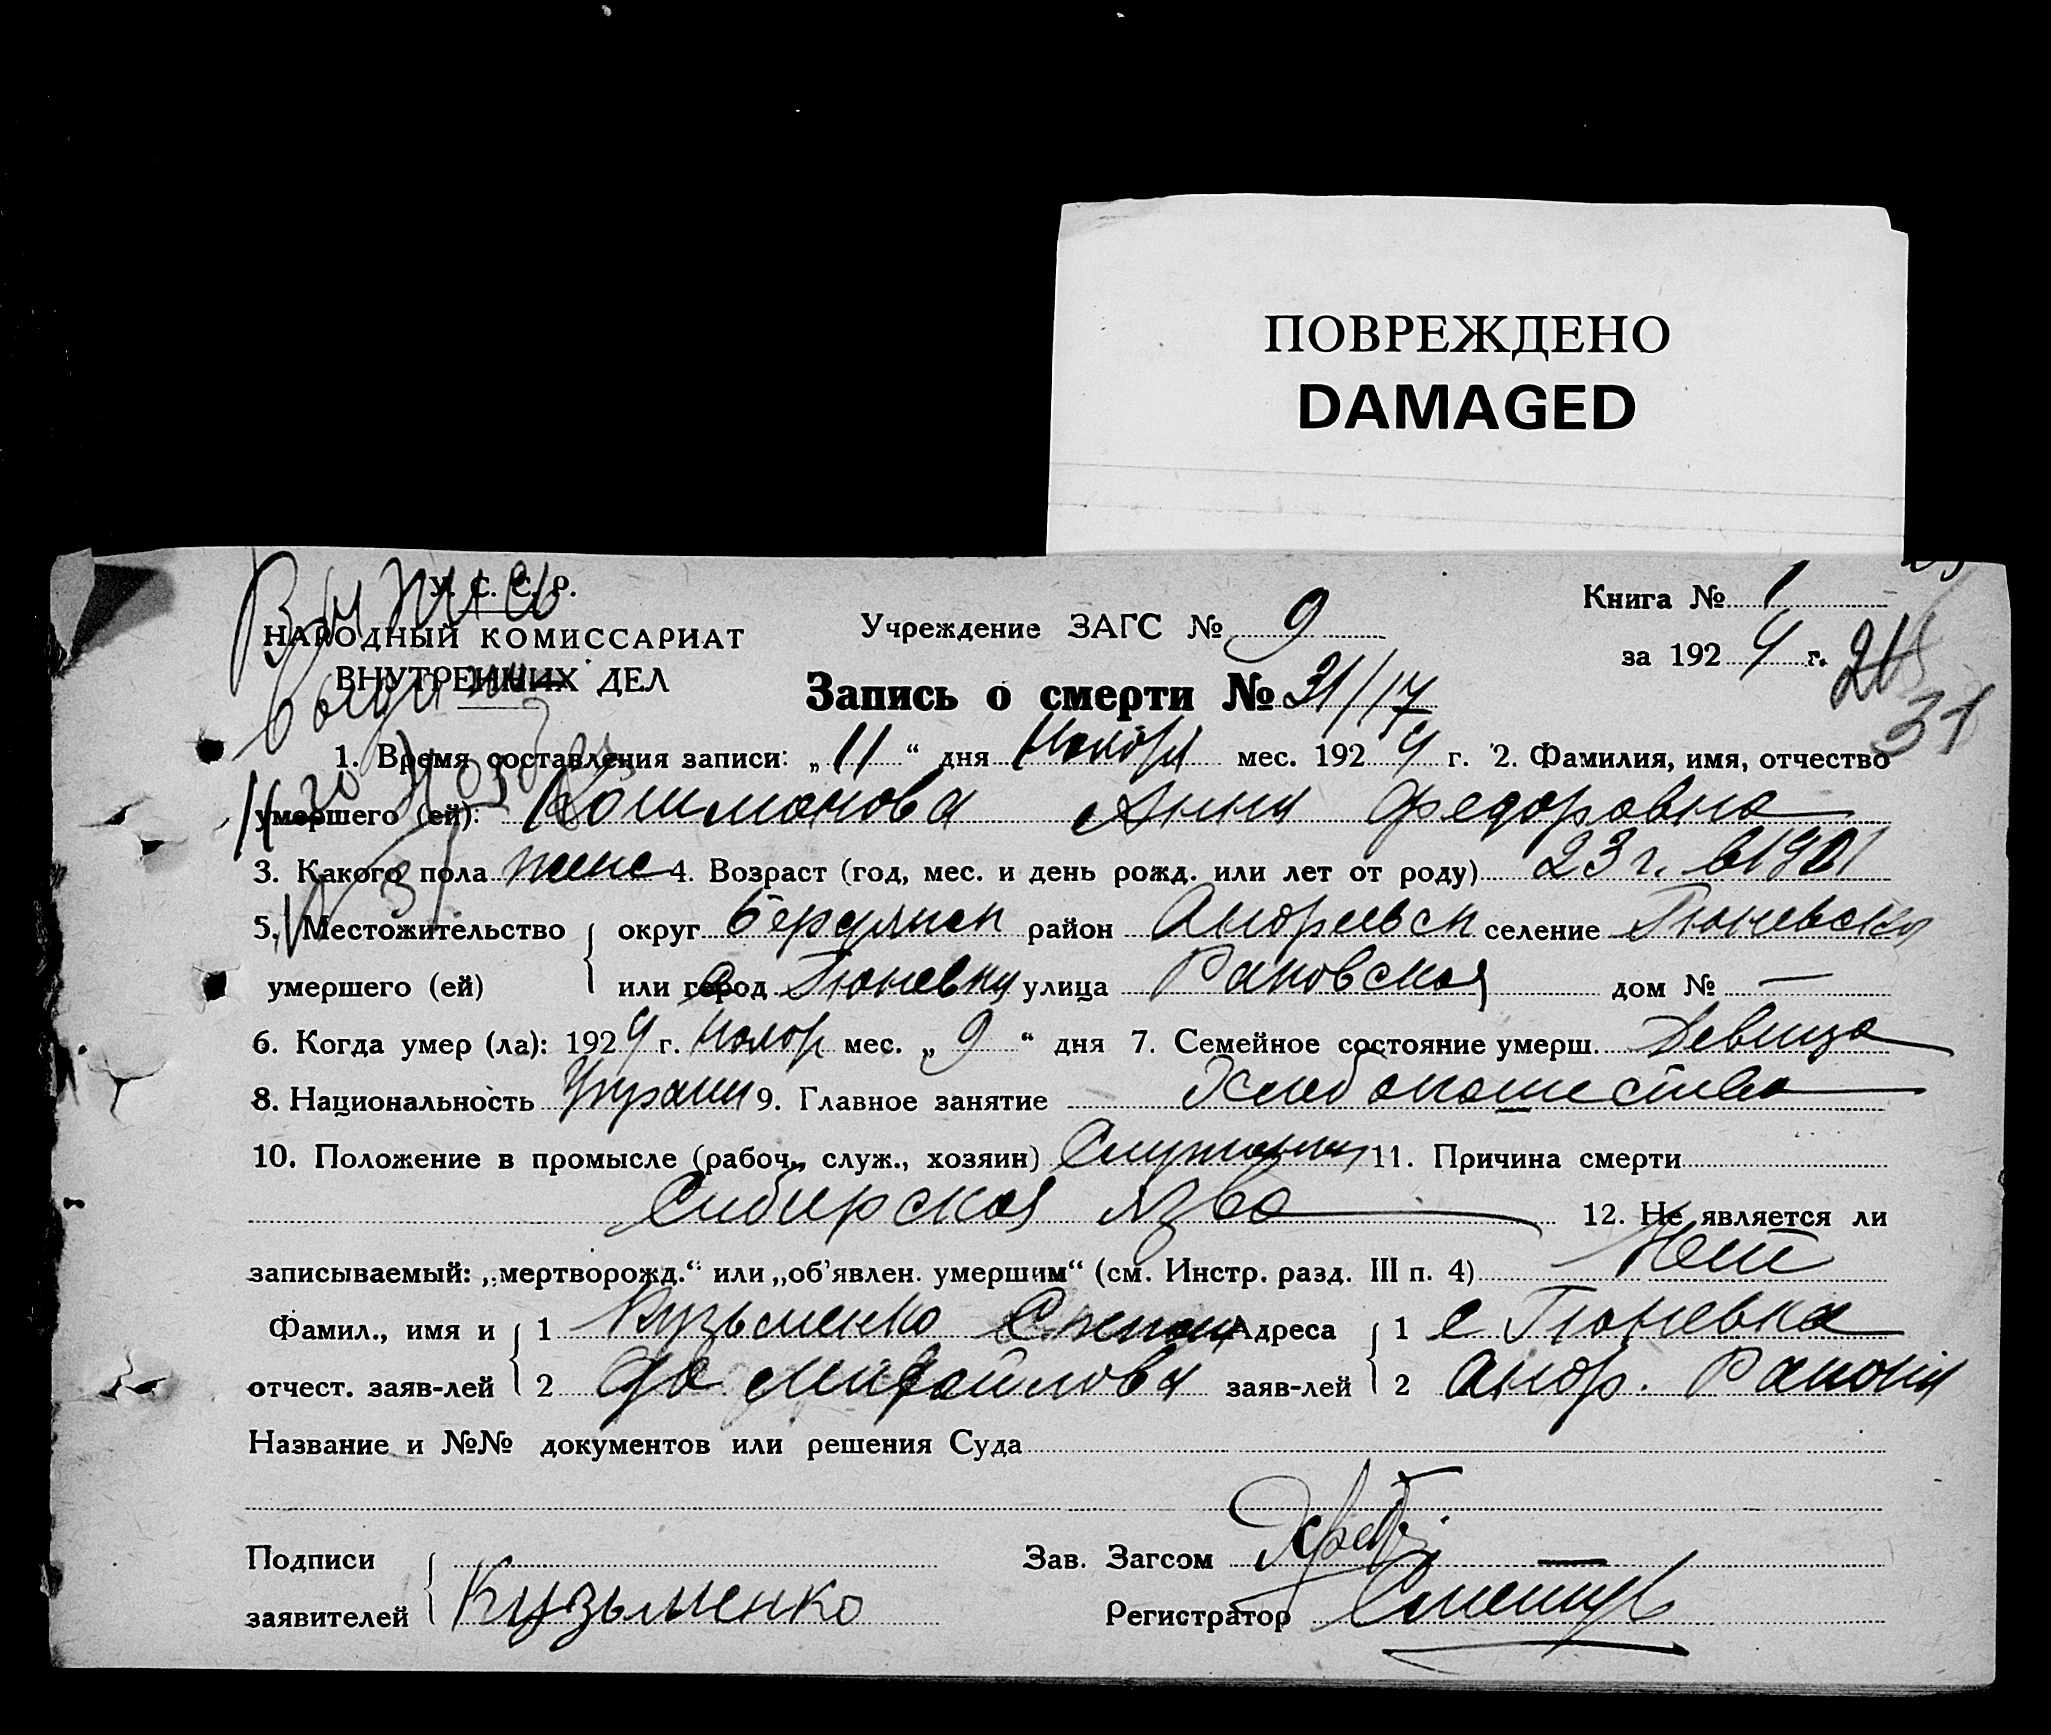 ПОВРЕЖДЕНО
DAMAGED
У. С. С. Р.
НАРОДНЫЙ КОМИССАРИАТ
ВНУТРЕННИХ ДЕЛ
Учреждение ЗАГС № 9
Книга № 1
за 1924 г.
31
Запись о смерти № 31/17
1. Время составления записи: „11“ дня Ноября мес. 1924 г. 2. Фамилия, имя, отчество
умершего (ей): Кошманова Анна Федоровна
3. Какого пола женс 4. Возраст (год, мес. и день рожд. или лет от роду) 23 г. в 1901
5. Местожительство округ Бердянск район Андреевск селение Гюневска
умершего (ей) или город Гюневка улица Раковская дом № —
6. Когда умер (ла): 1924 г. Ноябр мес. „9“ дня 7. Семейное состояние умерш. Девица
8. Национальность Украин 9. Главное занятие Хлебопашество
10. Положение в промысле (рабоч., служ., хозяин) 11. Причина смерти
Сибирская язва 12. Не является ли
записываемый: „мертворожд.“ или „об'явлен. умершим“ (см. Инстр. разд. III п. 4) Нет
Фамил., имя и 1 Кузьменко Степани Адреса 1 с Гюневка
отчест. заяв-лей 2 да Михайлова заяв-лей 2 Андр. Района
Название и №№ документов или решения Суда
Подписи Зав. Загсом
заявителей Кузьменко Регистратор